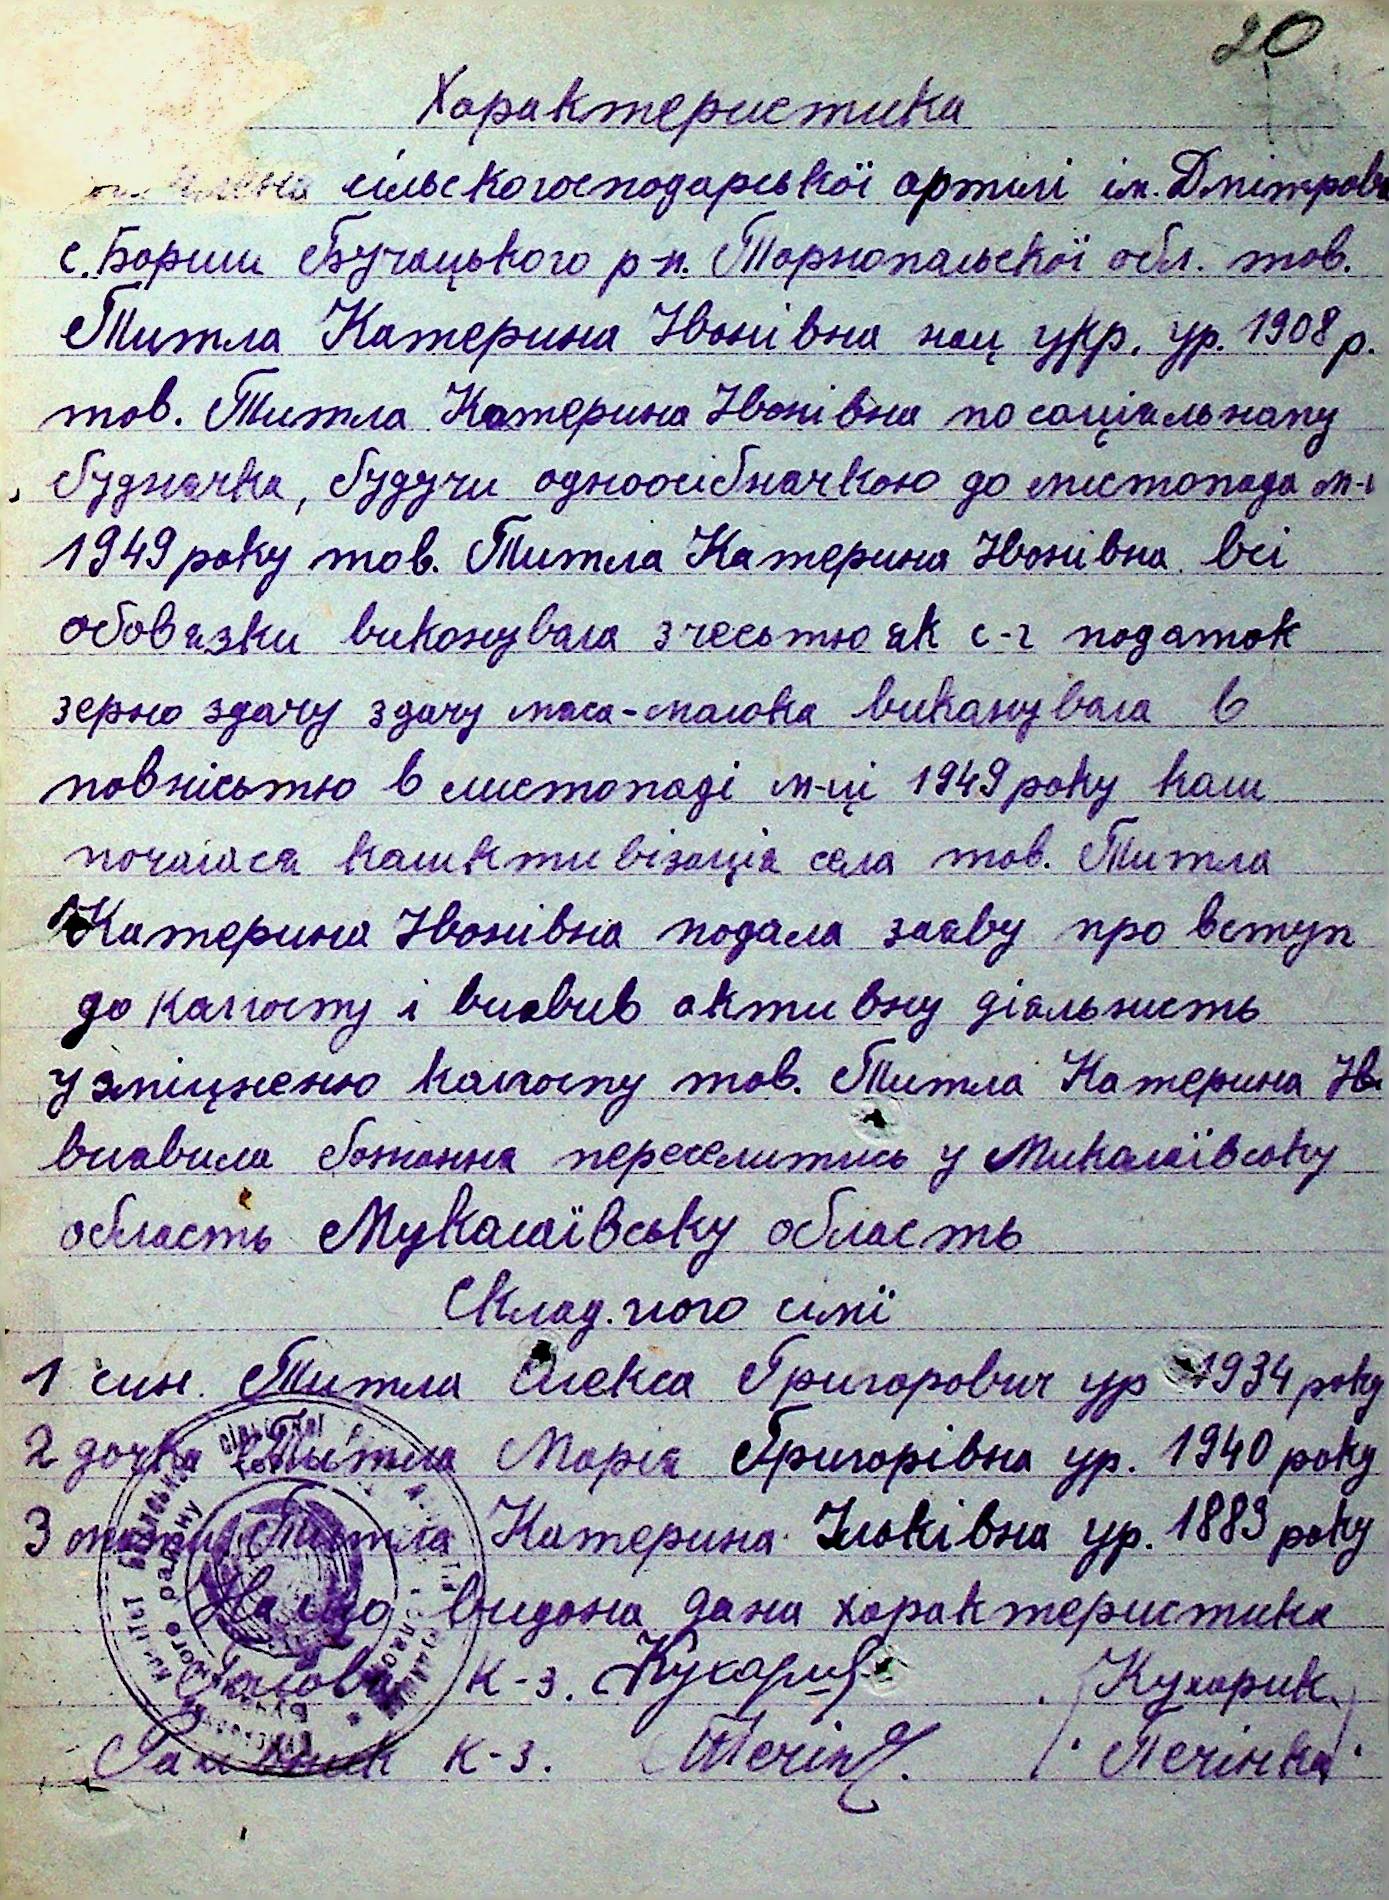 20
Характеристика
члена сільскогосподарської артілі ім. Дмітрова
с. Бориш Бучацького р-н. Тернопільскої обл. тов.
Титла Катерина Іванівна нац укр. ур. 1908 р.
тов. Титла Катерина Іванівна по соціальнапу
будначка, будучи одноосібначкою до листопада м-ц
1949 року тов. Титла Катерина Іванівна всі
обовязки виконувала з чесьтю як с-г податок
зерно здачу здачу мяса-малока виканувала в
повнісьтю в листопаді м-ці 1949 року коли
почалася калективізація села тов. Титла
Катерина Іванівна подала заяву про вступ
до калгоспу і виявив активну діяльність
у зміцненю калгоспу тов. Титла Катерина Ів.
виявила бажання переселитись у Микалаївську
область Мукалаївську область
Склад. його сімї
1 син. Титла Олекса Григорович ур 1934 року
2 дочка Титла Марія Григорівна ур. 1940 року
3 мати Титла Катерина Ільківна ур. 1883 року
На що видона дана характеристика
Голова к-з. Кухарик Кухарик
к-з. Печінка Печінка